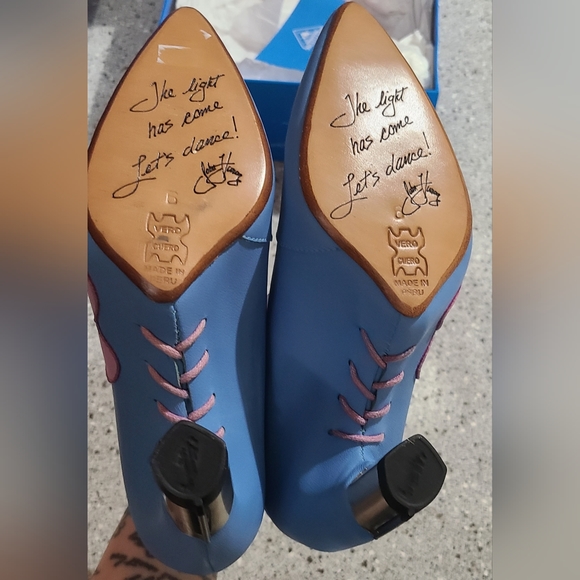 The light
has come
Let's dance!
John Fluevog
B
VERO
CUERO
MADE IN
PERU
The light
has come
Let's dance!
John Fluevog
VERO
CUERO
MADE IN
PERU